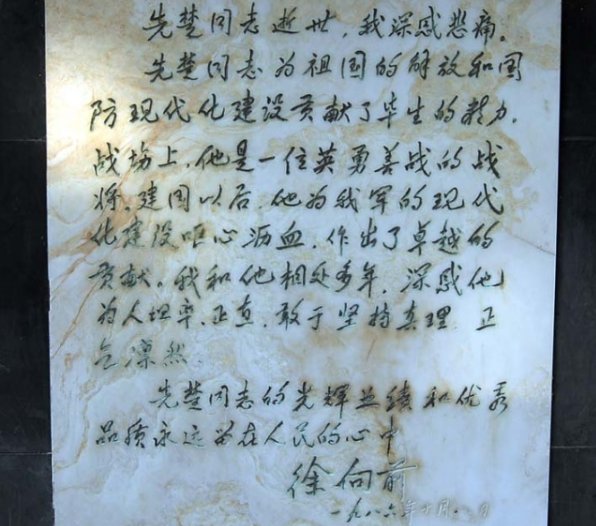 先楚同志逝世，我深感悲痛。
先楚同志为祖国的解放和国
防现代化建设贡献了毕生的精力。
战场上，他是一位英勇善战的战
将，建国以后，他为我军的现代
化建设呕心沥血，作出了卓越的
贡献。我和他相处多年，深感他
为人坦率、正直，敢于坚持真理，正
气凛然。
先楚同志的光辉业绩和优秀
品质永远留在人民的心中
徐向前
一九八六年十月 日